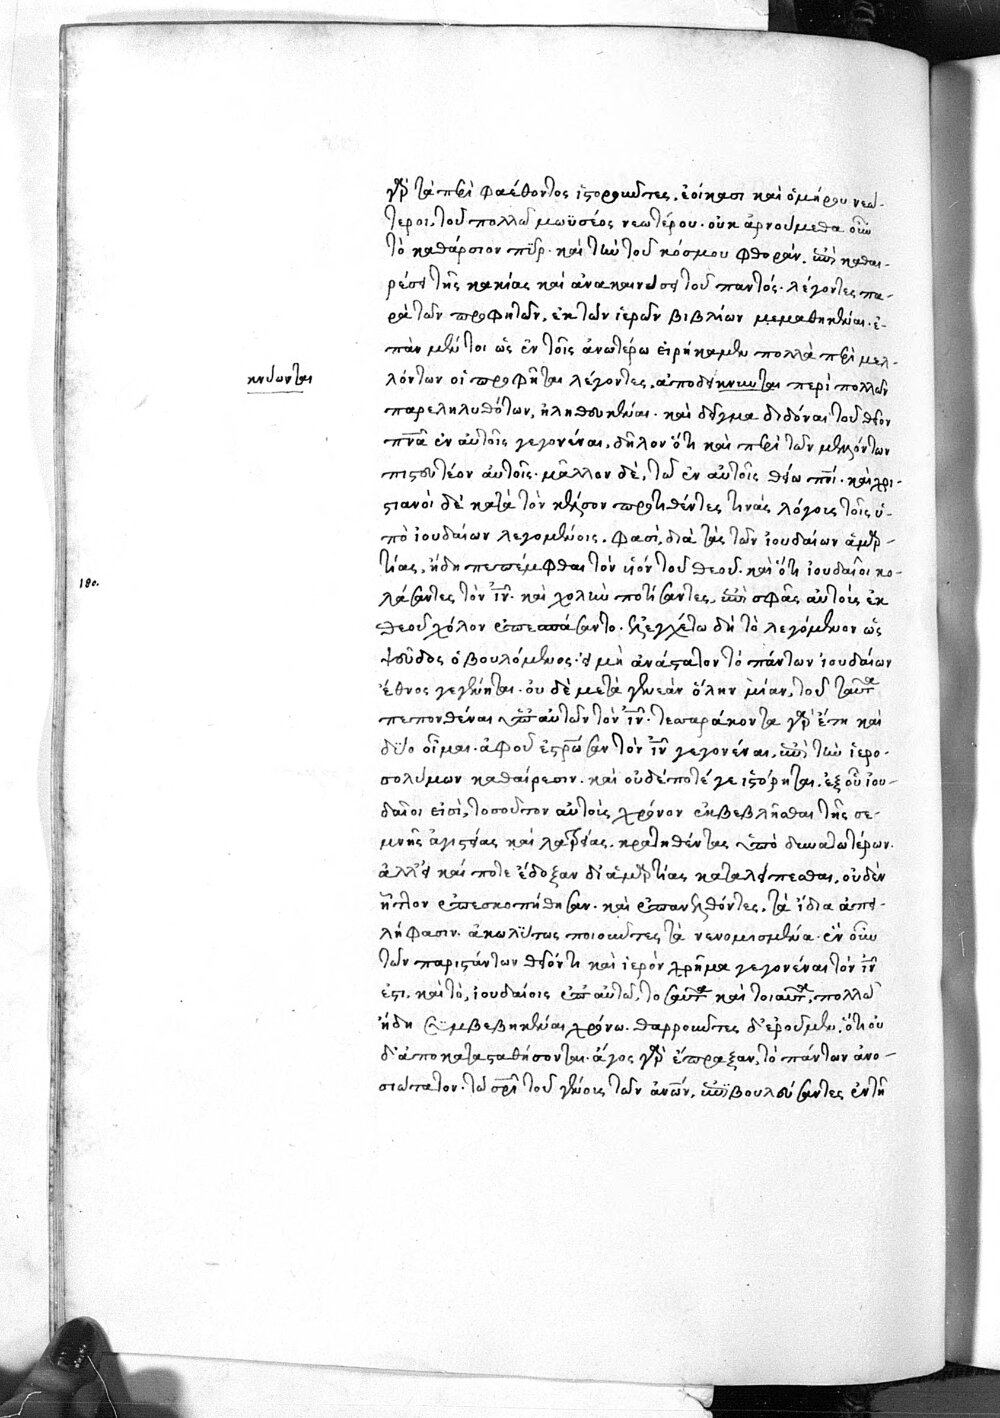 γὰρ τὰ περὶ φαέθοντος ἱστοροῦντες, ἐοίκασι καὶ ὁμήρου νεώ-
τεροι, τοῦ πολλῶ μωϋσέος νεωτέρου· οὐκ ἀρνούμεθα οὖν
τὸ καθάρσιον πῦρ· καὶ τὴν τοῦ κόσμου φθοράν, ἐπὶ καθαι-
ρέσει τῆς κακίας καὶ ἀνακαινώσει τοῦ παντός· λέγοντες πα-
ρὰ τῶν προφητῶν, ἐκ τῶν ἱερῶν βιβλίων μεμαθηκέναι· ἐ-
πὰν μέντοι ὡς ἐν τοῖς ἀνωτέρω εἰρήκαμεν πολλὰ περὶ μελ-
κνύωνται
λόντων οἱ προφῆται λέγοντες, ἀποδεικνυῦται περὶ πολλῶν
παρεληλυθότων, ἠληθευκέναι· καὶ δεῖγμα διδόναι τοῦ θεῖον
πνᾶ ἐν αὐτοῖς γεγονέναι, δῆλον ὅτι καὶ περὶ τῶν μελλόντων
πιστευτέον αὐτοῖς· μᾶλλον δὲ, τῶ ἐν αὐτοῖς θείω πνι· καὶ χρι-
στιανοὶ δὲ κατὰ τὸν κέλσον προστιθέντες τινὰς λόγοις τοῖς ὑ-
πὸ ἰουδαίων λεγομένοις, φασὶ, διὰ τὰς τῶν ἰουδαίων ἁμαρ-
180.
τίας, ἤδη πεπέμφθαι τὸν υἱὸν τοῦ θεοῦ· καὶ ὅτι ἰουδαῖοι κο-
λάσαντες τὸν ιν· καὶ χολὴν ποτίσαντες, ἐπὶ σφᾶς αὐτοὺς ἐκ
θεοῦ χόλον ἐπεσπάσαντο· ἐλεγχέτω δὴ τὸ λεγόμενον ὡς
ψεῦδος ὁ βουλόμενος· εἰ μὴ ἀνάστατον τὸ πάντων ἰουδαίων
ἔθνος γεγένηται· οὐ δὲ μετὰ γενεὰν ὅλην μίαν, τοῦ ταῦτα
πεπονθέναι ὑπ' αὐτῶν τὸν ιν· τεσσαράκοντα γὰρ ἔτη καὶ
δύο οἶμαι· ἀφοῦ ἐσταύρωσαν τὸν ιν γεγονέναι, ἐπὶ τὴν ἱερο-
σολύμων καθαίρεσιν· καὶ οὐδέποτέ γε ἱστόρηται· ἐξ οὗ ἰου-
δαῖοι εἰσὶ, τοσοῦτον αὐτοὺς χρόνον ἐκβεβλῆσθαι τῆς σε-
μνῆς ἁγιστείας καὶ λατρείας, κρατηθέντας ὑπὸ δυνατωτέρων·
ἀλλ' εἰ καί ποτε ἔδοξαν δι' ἁμαρτίας καταλείπεσθαι, οὐδὲν
ἧττον ἐπεσκοπήθησαν· καὶ ἐπανελθόντες, τὰ ἴδια ἀπει-
λήφασιν· ἀκωλύτως ποιοῦντες τὰ νενομισμένα· ἓν οὖν
τῶν παριστάντων θεῖόν τι καὶ ἱερὸν χρῆμα γεγονέναι τὸν ιν
ἐστι· καὶ τὸ, ἰουδαίοις ἐπ' αὐτῶ, τοσαῦτα καὶ τοιαῦτα, πολλῶ
ἤδη συμβεβηκέναι χρόνω· θαρροῦντες δ' ἐροῦμεν, ὅτι οὐ
δ' ἀποκατασταθήσονται· ἄγος γὰρ ἔπραξαν, τὸ πάντων ἀνο-
σιώτατον· τῶ σρι τοῦ γένους τῶν ἀνων, ἐπιβουλεύσαντες ἐν τῆ